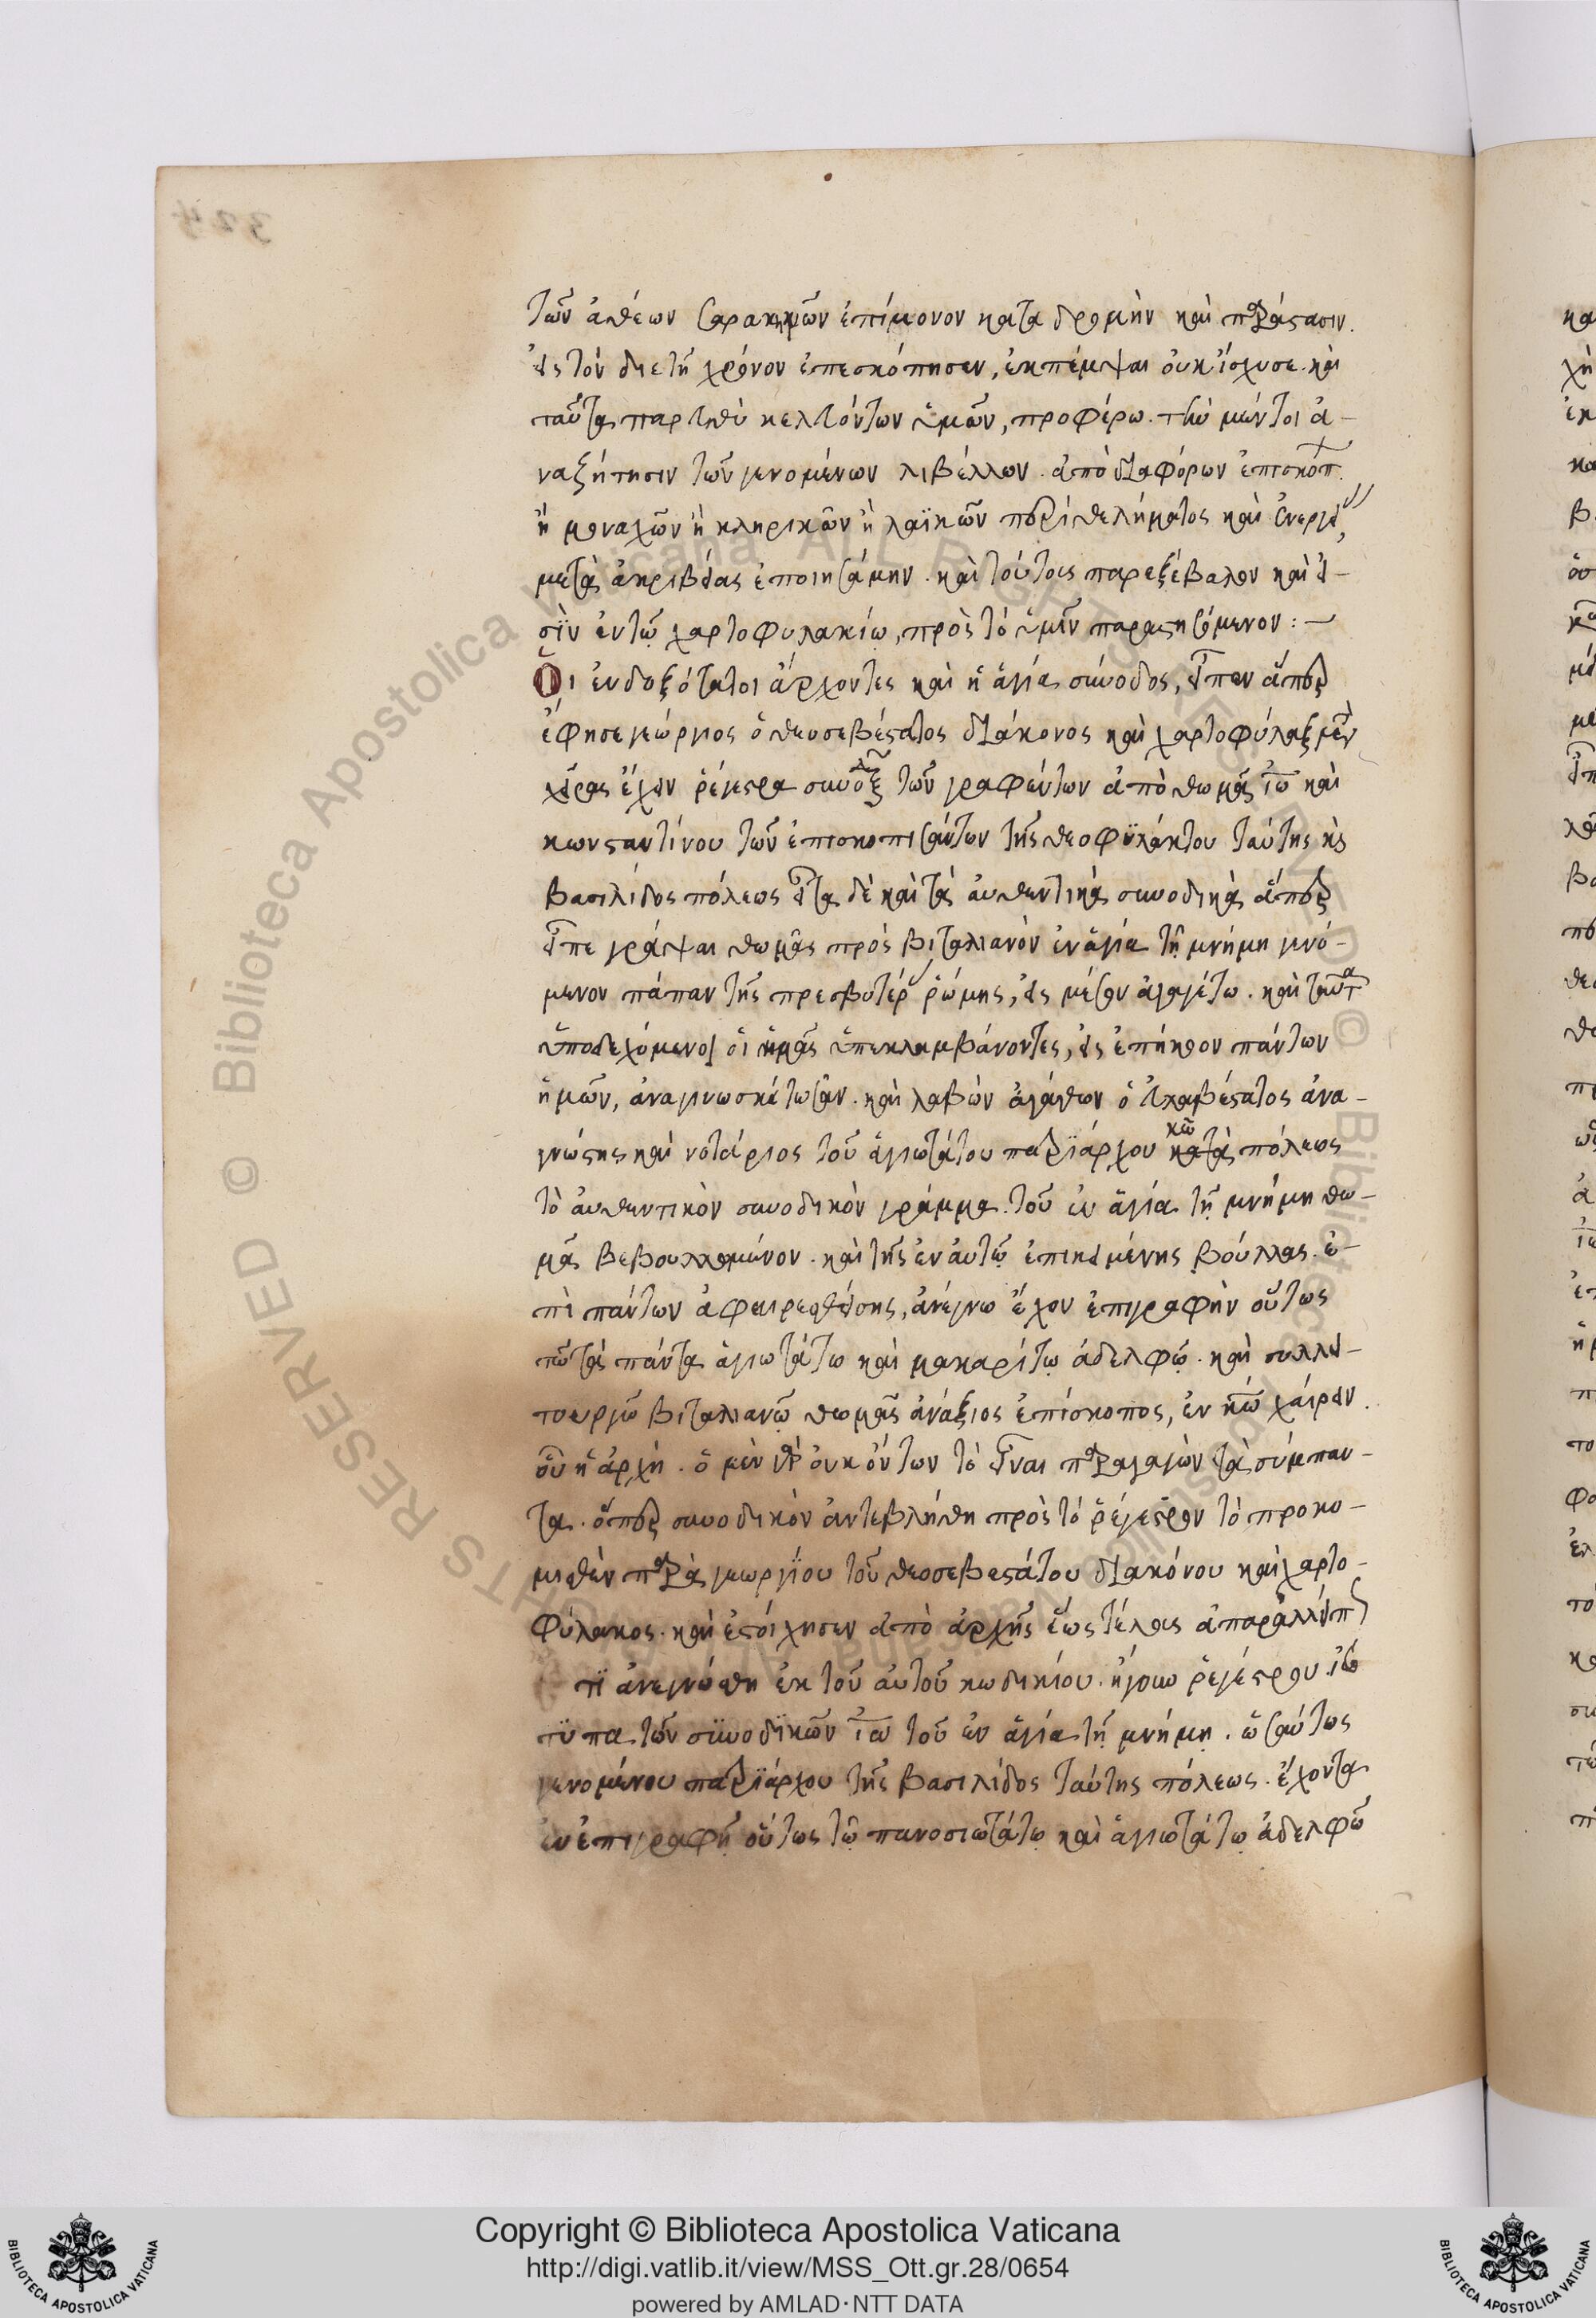 τῶν ἀθέων Σαρακηνῶν ἐπίμονον κατα δρομὴν καὶ παράστασιν.
εἰς τὸν διετῆ χρόνον ἐπεσκόπησεν, ἐκπέμψαι οὐκ ἴσχυσε. καὶ
ταῦτα κελευόντων ὑμῶν, προφέρω. τὴν μέντοι ἀ-
ναζήτησιν τῶν γενομένων λιβέλλων. ἀπὸ διαφόρων ἐπισκόπ.
ἢ μοναχῶν ἢ κληρικῶν ἢ λαϊκῶν περὶ θελήματος καὶ ἐνεργεί,
μετὰ ἀκριβείας ἐποιησάμην. καὶ τούτοις παρεξέβαλον καὶ εἰ-
σὶν ἐν τῷ χαρτοφυλακίω, πρὸς τὸ ὑμῖν παραστησόμενον :—
Οἱ ἐνδοξότατοι ἄρχοντες καὶ ἡ ἁγία σύνοδος, εἶπεν ἅπερ
ἔφησε γεώργιος ὁ θεοσεβέστατος διάκονος καὶ χαρτοφύλαξ μετὰ
χεῖρας ἔχειν ῥέγεστρα τῶν γραφέντων ἀπὸ θωμᾶ ἰω καὶ
κωνσταντίνου τῶν ἐπισκοπισάντων τῆς θεοφυλάκτου ταύτης κς
βασιλίδος πόλεως εἶτα δὲ καὶ τὰ αὐθεντικὰ συνοδικὰ ἅπερ
εἶπε γράψαι θωμᾶς πρὸς βιταλιανὸν ἐν ἁγία τῆ μνήμη γενό-
μενον πάπαν τῆς πρεσβυτέρ ῥώμης, εἰς μέσον ἀγαγέτω. καὶ ταῦτ
ὑποδεχόμενοι οἱ ἡμᾶς ὑπεκλαμβάνοντες, εἰς ἐπήκοον πάντων
ἡμῶν, ἀναγινωσκέτωσαν. καὶ λαβὼν ἀγάθων ὁ εὐλαβέστατος ἀνα-
γνώστης καὶ νοτάριος τοῦ ἁγιωτάτου πατριάρχου κω πόλεως
τὸ αὐθεντικὸν συνοδικὸν γράμμα. τοῦ ἐν ἁγία τῆ μνήμη θω-
μᾶ βεβουλλωμένον. καὶ τῆς ἐν αὐτῷ ἐπικειμένης βούλλας. ἐ-
πὶ πάντων ἀφαιρεθείσης, ἀνέγνω ἔχον ἐπιγραφὴν οὕτως
τῶ τὰ πάντα ἁγιωτάτω καὶ μακαρίτῳ ἀδελφῷ. καὶ συλλει-
τουργῶ βιταλιανῷ θωμᾶς ἀνάξιος ἐπίσκοπος, ἐν κω χαίρειν.
οὗ ἡ ἀρχή. ὁ μὲν θς ἐκ οὐκ ὄντων τὸ εἶναι παραγαγὼν τὰ σύμπαν-
τα. ὅπερ συνοδικὸν ἀντεβλήθη πρὸς τὸ ῥέγεστρον τὸ προκο-
μισθὲν παρὰ γεωργίου τοῦ θεοσεβεστάτου διακόνου καὶ χαρτο-
φύλακος. καὶ ἐστοίχησεν ἀπὸ ἀρχῆς ἕως τέλους ἀπαραλλείπτ
τϊ ἀνεγνώσθη ἐκ τοῦ αὐτοῦ κωδικίου. ἤγουν ῥεγέστρου.
τύπα τῶν συνοδϊκῶν ἰω τοῦ ἐν ἁγία τῆ μνήμῃ. ὡσαύτως
γενομένου πατριάρχου τῆς βασιλίδος ταύτης πόλεως. ἔχοντα
ἐν ἐπιγραφῆ οὕτως τῷ πανοσιωτάτῳ καὶ ἁγιωτάτῳ ἀδελφῶ
Copyright © Biblioteca Apostolica Vaticana
http://digi.vatlib.it/view/MSS_Ott.gr.28/0654
powered by AMLAD·NTT DATA